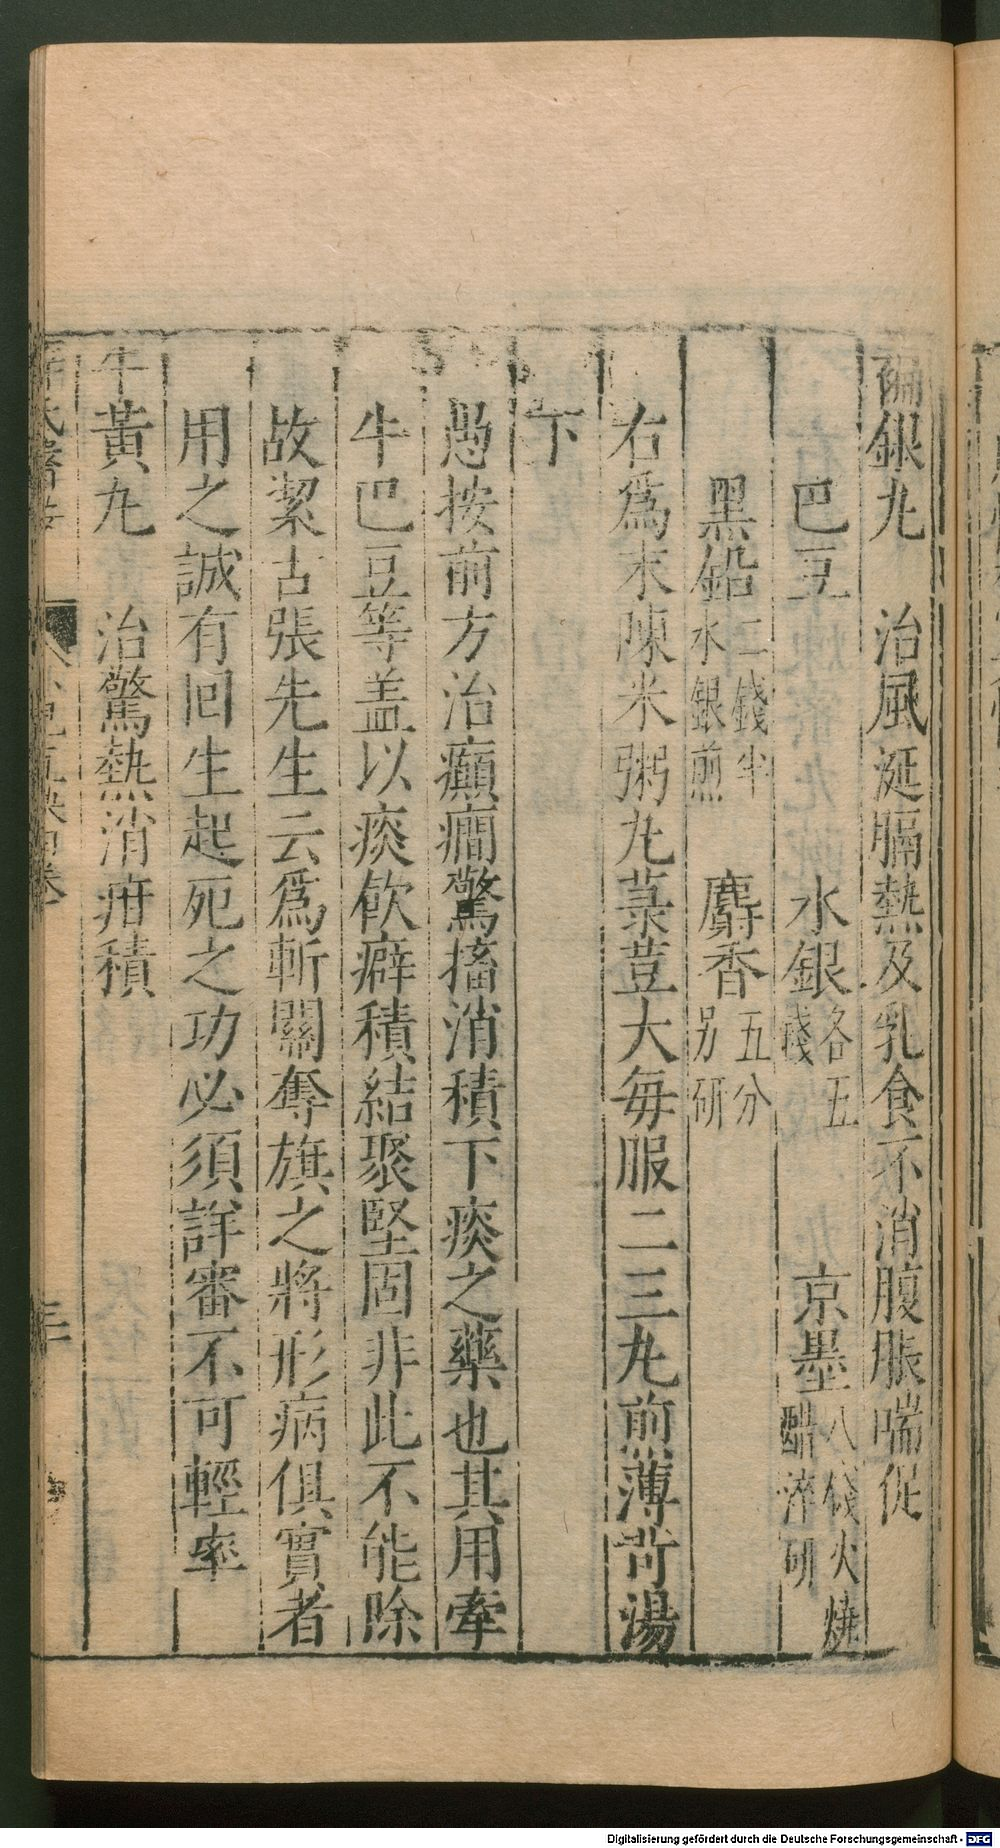 褊銀丸　治風涎膈熱及乳食不消腹脹喘促
巴豆　水銀各五錢　京墨八錢火燒醋淬研
黑鉛二錢半水銀煎　麝香五分另研
右爲末陳米粥丸菉荳大每服二三丸煎薄荷湯
下
愚按前方治癲癎驚搐消積下痰之藥也其用牽
牛巴豆等盖以痰飲癖積結聚堅固非此不能除
故潔古張先生云爲斬關奪旗之將形病俱實者
用之誠有回生起死之功必須詳審不可輕率
牛黃丸　治驚熱消疳積
Digitalisierung gefördert durch die Deutsche Forschungsgemeinschaft - DFG